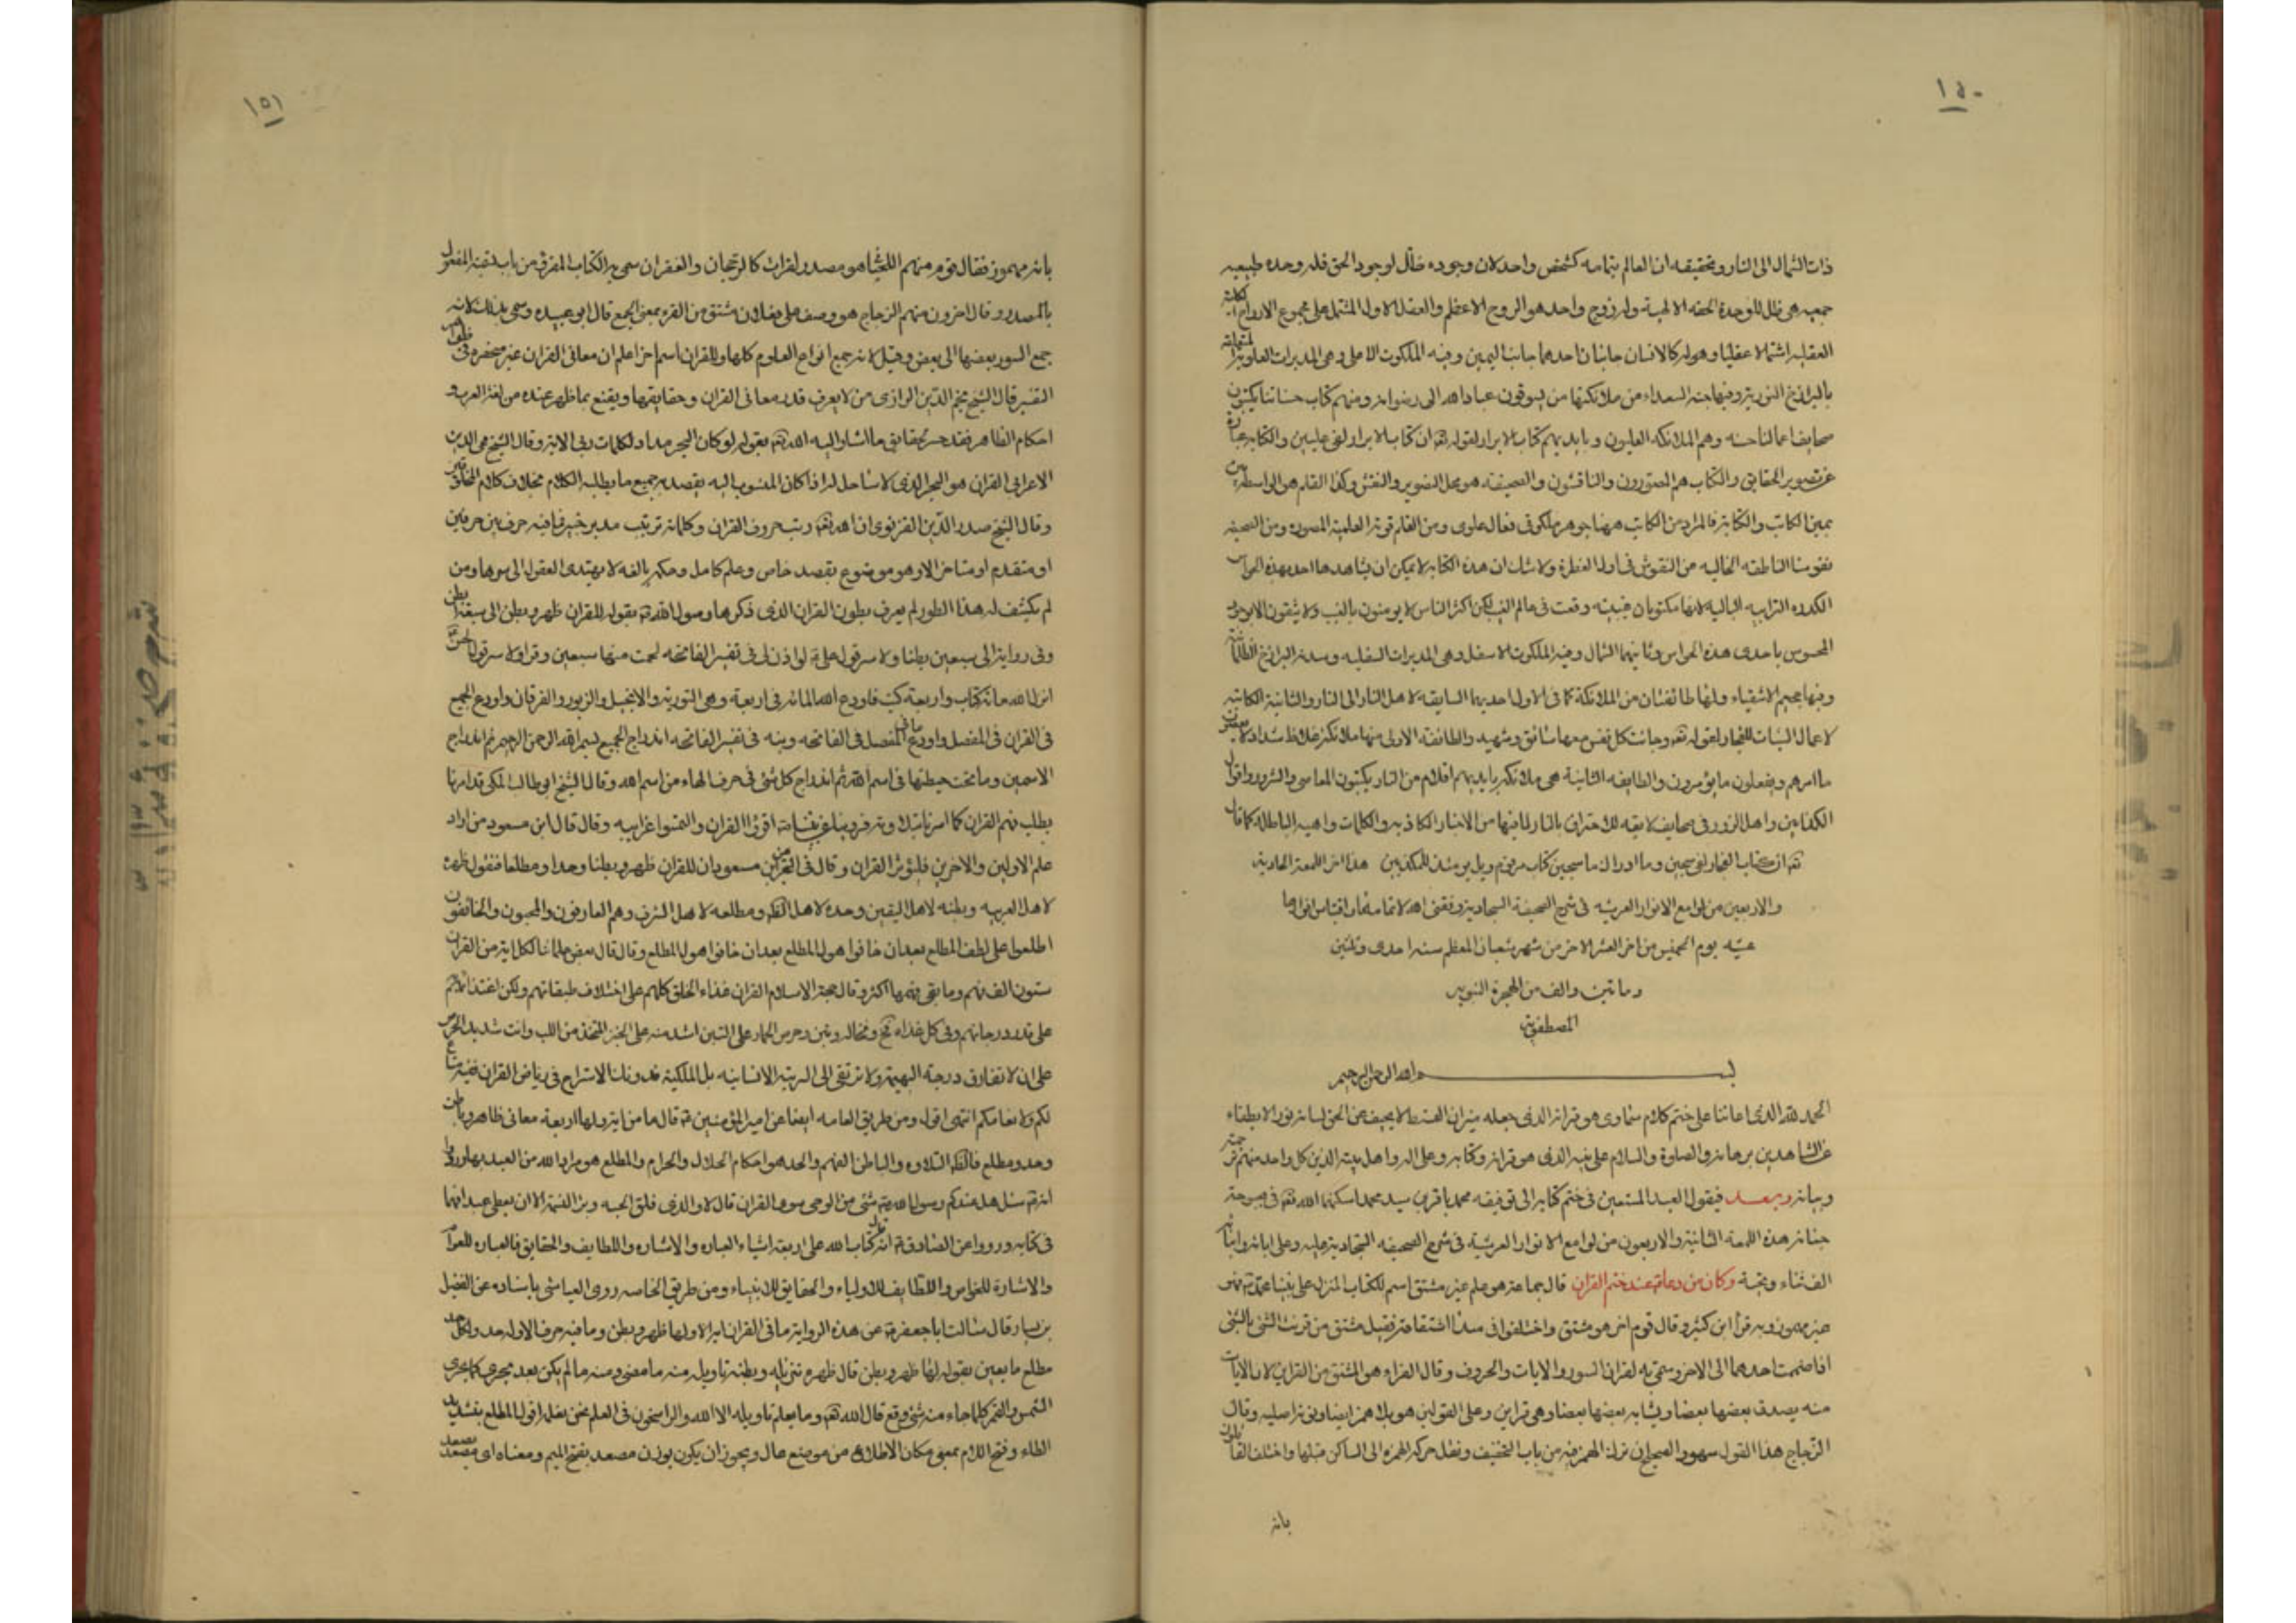 ١٥٠
ذات الشمال الى النار وتحقيقه ان العالم بتمامه كشخص واحد لان وجوده ظل لوجود الحق فله وحده طبيعيه
جمعيه هي ظل للوحدة الحقه الالهية وله روح واحد هو الروح الاعظم والعقل الاول المشتمل على مجموع الارواح الكلية
العقليه اشتمالا عقليا وهو له كالانسان جانبان احدهما جانب اليمين وفيه الملكوت الاعلى وهي المدبرات العلوية
بالبرازخ النورية وفيها جنة السعداء من ملائكتها من يسوقون عباد الله الى رضوانه ومنهم كتاب حسناتنا يكتبون
صحايف اعمالنا الحسنه وهم الملائكه العليون وبايديهم كتاب الابرار لقوله تعه ان كتاب الابرار لفى عليين والكتابه عبارة
عن تصوير الحقايق والكتاب هم المصورون والناقشون والصحيفه هو محل التصوير والنقش وكذا القلم هو الواسطه بين
بمين الكاتب والكتابة فالمراد من الكاتب ههنا جوهر ملكوتى فعال علوى ومن القلم قوته العلمية المصوره ومن الصحيفه
نفوسنا الناطقه الخاليه من النقوش فى اول الفطرة ولا شك ان هذه الكتابه لا يمكن ان يشاهدها احد بهذه الحواس
الكدره الترابيه الباليه لانها مكتوبات غيبية وقعت فى عالم الغيب لكن اكثر الناس لا يومنون بالغيب ولا يثقون الا بوجود
المحسوس باحدى هذه الحواس وثانيهما الشمال وفيه الملكوت الاسفل وهى المدبرات السفليه وسدنه البرازخ الظلمانية
وفيها جحيم الاشقياء ولها طائفتان من الملائكة كما فى الاول احديهما السايقه لاهل النار الى النار والثانية الكاتبه
لاعمال السيئات للفجار لقوله تعه وجائت كل نفس معها سائق وشهيد والطائفه الاولى منها ملائكة غلاظ شداد لا يعصون
ما امرهم ويفعلون ما يؤمرون والطايفه الثانية هى ملائكة بايديهم اقلام من النار يكتبون المعاصى والشرور واقوال
الكذابين واهل الزور فى صحايف لايقه للاحتراق بالنار لما فيها من الاخبار الكاذبه والكلمات واهيه الباطله كما قال
تعه ان كتاب الفجار لفى سجين وما ادراك ما سجين كتاب مرقوم ويل يومئذ للمكذبين هذا اخر اللمعة الحادية
والاربعين من لوامع الانوار العرشيه فى شرح الصحيفة السجادية وفقنى الله لاتمامه
عشيه يوم الخميس من اخر العشر الاخر من شهر شعبان المعظم سنه احدى وثلثين
وماتين والف من الهجرة النبويه
المصطفويه
بسم الله الرحمن الرحيم
الحمد لله الذى اعاننا على ختم كلام سماوى هو قرانه الذى جعله ميزان القسط لا يحيف عن الحق لسانه نور لا يطفاء
عن الشاهدين برهانه والصلوة والسلام على نبيه الذى هو قرانه وكتابه وعلى اله واهل بيته الذين كل واحد منهم ترجمته
وبيانه وبعد فيقول العبد المستعين فى ختم كتابه الى توفيقه محمد باقر بن سيد محمد اسكنهما الله تعه فى بحبوحة
جنانه هذه اللمعة الثانية والاربعون من لوامع الانوار العرشية فى شرح الصحيفه السجادية عليه وعلى ابائه وابنائه
الف ثناء وتحية وكان من دعائه عند ختم القران قال جماعة هو علم غير مشتق اسم للكتاب المنزل على نبينا محمد فهو
غير مهموز وبه قرأ ابن كثير وقال قوم اخر هو مشتق واختلفوا فى مبدأ اشتقاقه فقيل مشتق من قرنت الشئ بالشئ
اذا ضممت احدهما الى الاخر وسمى به لقران السور والايات والحروف وقال الفراء هو مشتق من القراين لان الايات
منه يصدق بعضها بعضا ويشابه بعضها بعضا وهى قراين وعلى القولين هو بلا همز ايضا ونونه اصليه وقال
الزجاج هذا القول سهو والصحيح ان ترك الهمز فيه من باب التخفيف ونقل حركة الهمزه الى الساكن قبلها واختلف القائلون
بانه
١٥١
بانه مهموز فقال قوم منهم اللحيانى هو مصدر لقرات كالرجحان والغفران سمى به الكتاب المقروء من باب تسمية المفعول
بالمصدر وقال اخرون منهم الزجاج هو وصف على فعلان مشتق من القرء بمعنى الجمع قال ابو عبيده وسمى بذلك لانه
جمع السور بعضها الى بعض وقيل لانه جمع انواع العلوم كلها وللقران اسماء اخر اعلم ان معانى القران غير منحصره فى ظواهر
التفسير قال الشيخ نجم الدين الرازى من لا يعرف قدر معانى القران وحقايقها ويقنع بما ظهر عنده من لغة العرب و
احكام الظاهر فقد خسر حقايق ما اشار اليه الله تعه بقوله لو كان البحر مدادا لكلمات ربى الاية وقال الشيخ محى الدين
الاعرابى القران هو البحر الذى لا ساحل له اذ كان المنسوب اليه يقصد به جميع ما يطلبه الكلام بخلاف كلام المخلوقين
وقال الشيخ صدر الدين القونوى ان الله تعه رتب حروف القران وكلماته ترتيب مدبر خبير فما فيه حرف بين حرفين
او متقدم او متاخر الا وهو موضوع بقصد خاص وعلم كامل وحكمة بالغه لا يهتدى العقول الى سرها ومن
لم يكشف له هذا الطور لم يعرف بطون القران الذى ذكرها رسول الله ص بقوله للقران ظهر وبطن الى سبعة ابطن
وفى رواية الى سبعين بطنا ولا سر قول على ع لو اذن لى فى تفسير الفاتحه لحملت منها سبعين وقرا ولا سر قول الحسن
انزل الله مائة كتاب واربعة كتب فاودع الله المائه فى اربعة وهى التورية والانجيل والزبور والفرقان واودع الجميع
فى القران فى المفصل واودع ما فى المفصل فى الفاتحه وبنه فى تفسير الفاتحه اندراج الجميع بسم الله الرحمن الرحيم ثم اندراج
الاسمين وما تحت حيطتها فى اسم الله ثم اندراج كل شئ فى حرف الهاء من اسم الله وقال الشيخ ابو طالب المكى قد امرنا
بطلب فهم القران كما امرنا بتلاوته اقرؤا القران والتمسوا غرايبه وقال قال ابن مسعود من اراد
علم الاولين والاخرين فليؤثر القران وقال فى الخبر عن ابن مسعود ان للقران ظهر وبطنا وحدا ومطلعا فنقول ظهره
لاهل العربيه وبطنه لاهل اليقين وحده لاهل الظاهر ومطلعه لاهل الشرف وهم العارفون والمحبون والخائفون
اطلعوا على لطف المطلع بعد ان خافوا هول المطلع بعد ان خافوا هول المطلع وقال قال بعض علمائنا لكل اية من القران
ستون الف فهم وما بقى فهمها اكثر وقال حجة الاسلام القران غذاء الخلق كلهم على اختلاف طبقاتهم ولكن اغتذائهم
على قدر درجاتهم وفى كل غذاء مخ ونخاله وتبن وحرص الحمار على التبن اشد منه على الخبز المتخذ من اللب وانت شديد الحرص
على ان لا تفارق درجة البهيمة ولا ترتقى الى الرتبه الانسانيه بل الملكية فدونك الاسراح فى رياض القران ففيه متاع
لكم ولانعامكم انتهى اقول ومن طريق العامه ايضا عن امير المؤمنين ع قال ما من اية الا ولها اربعة معانى ظاهر وباطن
وحد ومطلع فالظاهر التلاوه والباطن الفهم والحد هو احكام الحلال والحرام والمطلع هو مراد الله من العبد بها ورووا
انه ع سئل هل عندكم من رسول الله ص شئ من الوحى سوى القران قال لا والذى فلق الحبه وبرء النسمة الا ان يعطى عبدا فهما
فى كتابه ورووا عن الصادق ع انه قال كتاب الله على اربعة اشياء العباره والاشاره واللطايف والحقايق فالعباره للعوام
والاشارة للخواص واللطايف للاولياء والحقايق للانبياء ومن طريق الخاصه روى العياشى باسناده عن الفضيل
بن يسار قال سالت ابا جعفر ع عن هذه الرواية ما فى القران اية الا ولها ظهر وبطن وما فيه حرف الا وله حد ولكل حد
مطلع ما يعنى بقوله لها ظهر وبطن قال ظهره تنزيله وبطنه تاويله منه ما مضى ومنه ما لم يكن بعد يجرى كما يجرى
الشمس والقمر كلما جاء منه شئ وقع قال الله تعه وما يعلم تاويله الا الله والراسخون فى العلم نحن نعلمه اقول المطلع بتشديد
الطاء وفتح اللام بمعنى مكان الاطلاع من موضع عال ويجوز ان يكون بوزن مصعد بفتح الميم ومعناه اى مصعد